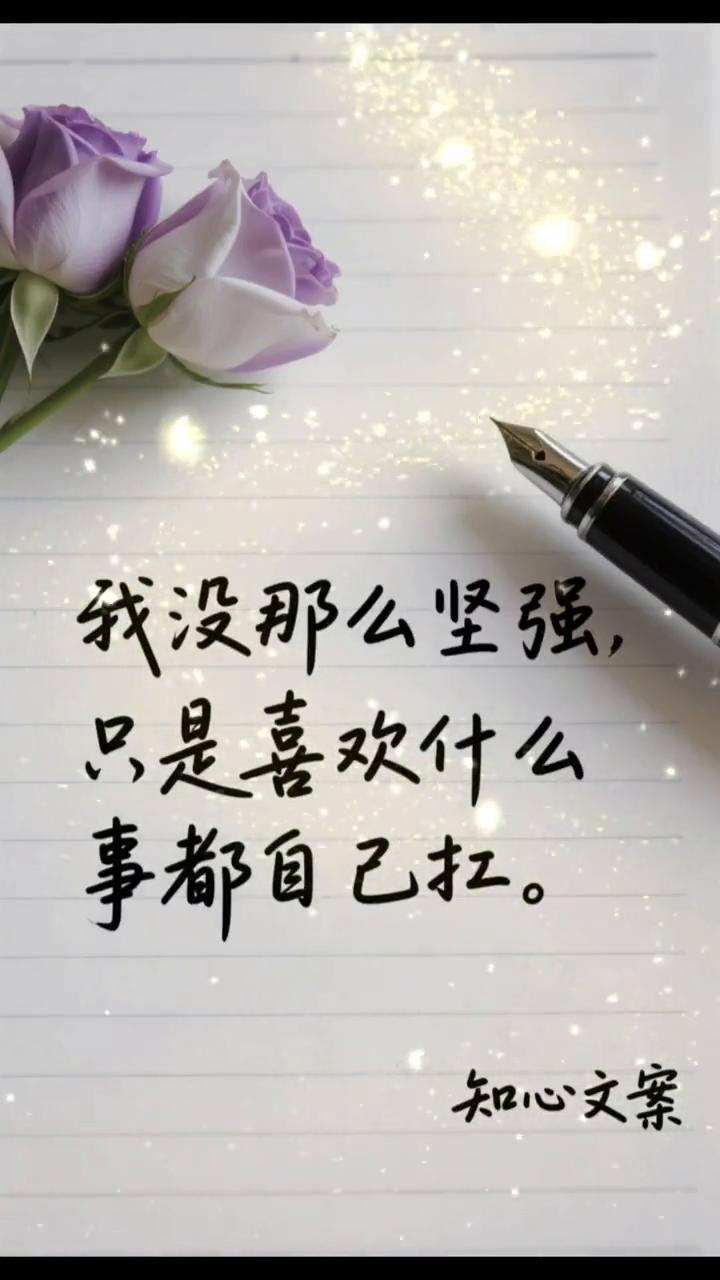 我没那么坚强，
只是喜欢什么
事都自己扛。
知心文案